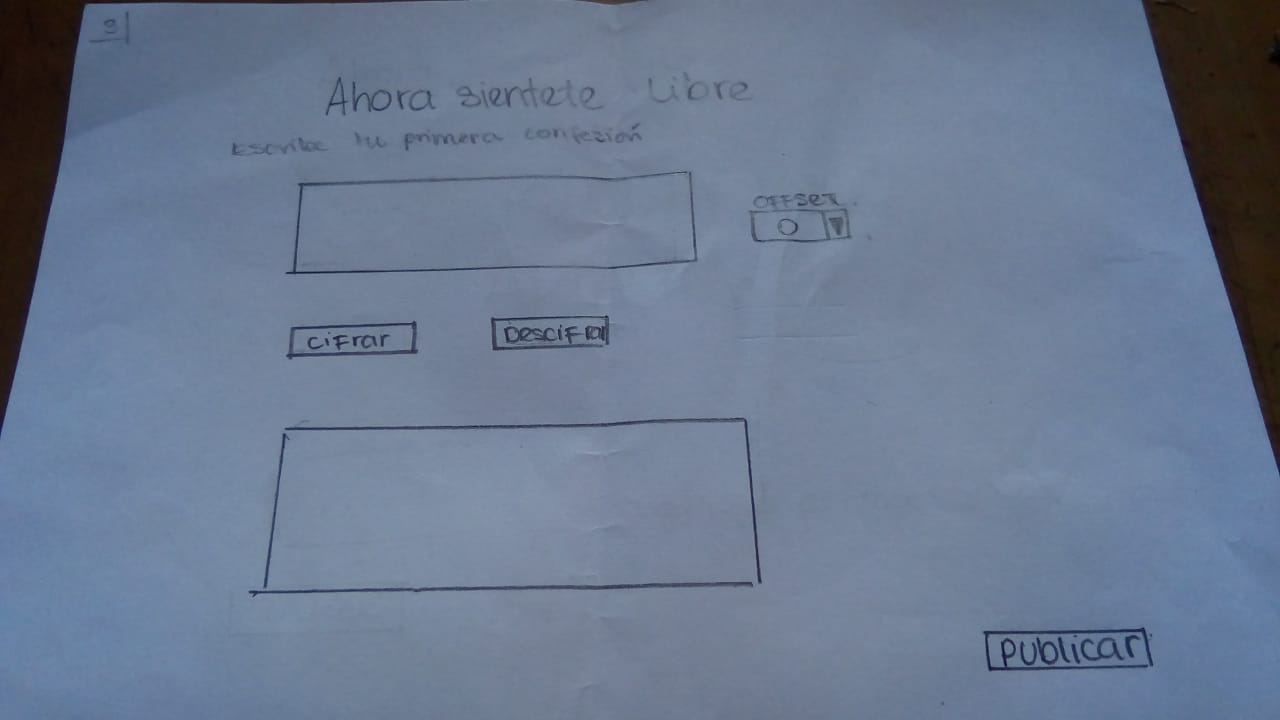 Ahora sientete Libre
Escribe tu primera confezión
OFFSET
0
CiFrar
DesciFrar
PUBLICAR